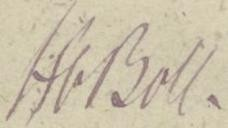 Hb Boll.